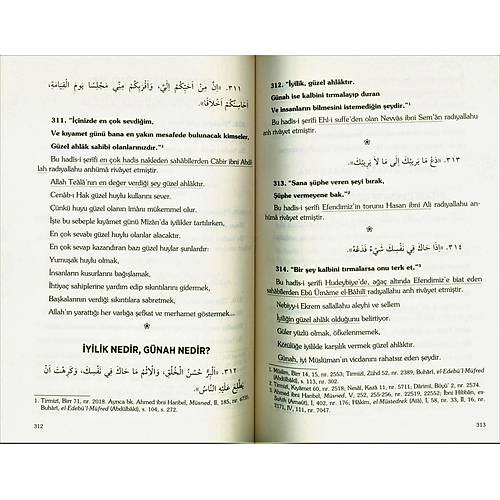 ٣١١. «إِنَّ مِنْ أَحَبِّكُمْ إِلَيَّ، وَأَقْرَبِكُمْ مِنِّي مَجْلِسًا يَوْمَ الْقِيَامَةِ،
أَحَاسِنَكُمْ أَخْلَاقًا».
311. "İçinizde en çok sevdiğim,
Ve kıyamet günü bana en yakın mesafede bulunacak kimseler,
Güzel ahlâk sahibi olanlarınızdır."
Bu hadîs-i şerifi en çok hadis nakleden sahâbîlerden Câbir ibni Abdil-
lah radıyallahu anhümâ rivâyet etmiştir.
Allah Teâlâ'nın en değer verdiği şey güzel ahlâktır.
Cenâb-ı Hak güzel huylu kullarını sever.
Çünkü güzel huylu olanın imânı mükemmel olur.
İşte bu sebeple kıyâmet günü Mizân'da iyilikler tartılırken,
En çok sevabı güzel huylu olanlar alacaktır.
En çok sevap kazandıran bazı güzel huylar şunlardır:
Yumuşak huylu olmak,
İnsanların kusurlarını bağışlamak,
İhtiyaç sahiplerine yardım edip sıkıntılarını gidermek,
Başkalarının verdiği sıkıntılara sabretmek,
Allah'ın yarattığı her varlığa şefkat ve merhamet göstermek...
İYİLİK NEDİR, GÜNAH NEDİR?
٣١٢. «اَلْبِرُّ حُسْنُ الْخُلُقِ، وَالْإِثْمُ مَا حَاكَ فِي نَفْسِكَ، وَكَرِهْتَ أَنْ
يَطَّلِعَ عَلَيْهِ النَّاسُ».
1. Tirmizî, Birr 71, nr. 2018. Ayrıca bk. Ahmed ibni Hanbel, Müsned, II, 185, nr. 6735;
Buhârî, el-Edebü'l-Müfred (Abdülbâkî), s. 104, s. 272.
312
312. "İyilik, güzel ahlâktır.
Günah ise kalbini tırmalayıp duran
Ve insanların bilmesini istemediğin şeydir."¹
Bu hadîs-i şerifi Ehl-i suffe'den olan Nevvâs ibni Sem'ân radıyallahu
anh rivâyet etmiştir.
٣١٣. «دَعْ مَا يَرِيبُكَ إِلَى مَا لَا يَرِيبُكَ».
313. "Sana şüphe veren şeyi bırak,
Şüphe vermeyene bak."²
Bu hadîs-i şerifi Efendimiz'in torunu Hasan ibni Ali radıyallahu anhü-
mâ rivâyet etmiştir.
٣١٤. «إِذَا حَاكَ فِي نَفْسِكَ شَيْءٌ فَدَعْهُ».
314. "Bir şey kalbini tırmalarsa onu terk et."³
Bu hadîs-i şerifi Hudeybiye'de, ağaç altında Efendimiz'e biat eden
sahâbîlerden Ebû Ümâme el-Bâhilî radıyallahu anh rivâyet etmiştir.
Nebiyy-i Ekrem sallallahu aleyhi ve sellem
İyiliğin güzel ahlâk olduğunu belirtiyor.
Güler yüzlü olmak, öfkelenmemek,
Kötülüğe iyilikle karşılık vermek güzel ahlâktır.
Günah, iyi Müslüman'ın vicdanını rahatsız eden şeydir.
1. Müslim, Birr 14, 15, nr. 2553; Tirmizî, Zühd 52, nr. 2389; Buhârî, el-Edebü'l-Müfred
(Abdülbâkî), s. 113, nr. 302.
2. Tirmizî, Kıyâmet 60, nr. 2518; Nesâî, Kazâ 11, nr. 5711; Dârimî, Büyû' 2, nr. 2574.
3. Ahmed ibni Hanbel, Müsned, V, 252, 255-256, nr. 22519, 22552; İbni Hibbân, es-
Sahîh (Arnaût), I, 402, nr. 176; Hâkim, el-Müstedrek (Atâ), I, 58, nr. 33, II, 16, nr.
2171, IV, 111, nr. 7047.
313